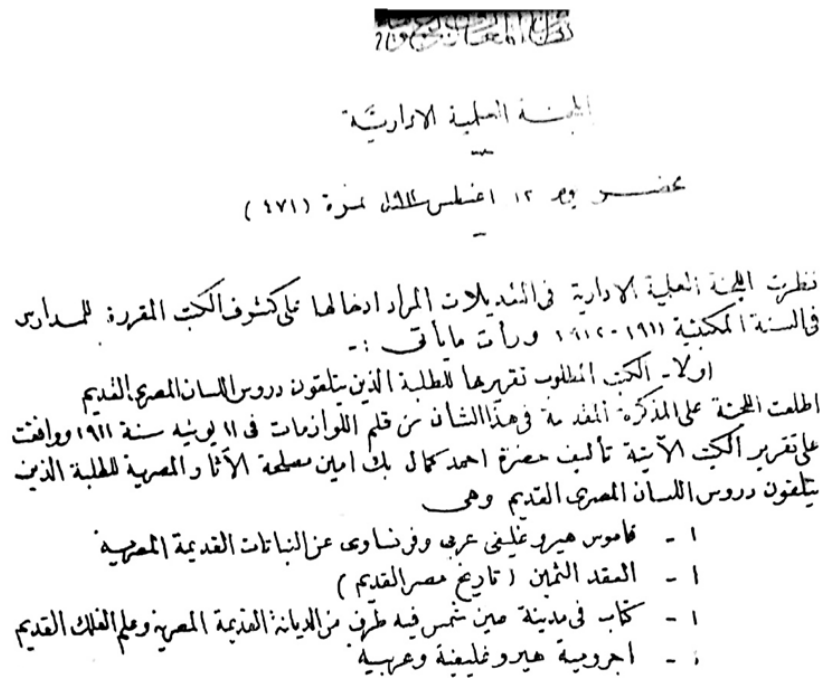 اللجنة العلمية الادارية
محضر يوم ١٢ اغسطس سنة ١٩١١ نمرة (٤٧١)
نظرت اللجنة العلمية الادارية فى التعديلات المراد ادخالها على كشوف الكتب المقررة للمدارس
فى السنة المكتبية ١٩١١-١٩١٢ ورأت مايأتى :-
اولا - الكتب المطلوب تقريرها للطلبة الذين يتلقون دروس اللسان المصرى القديم
اطلعت اللجنة على المذكرة المقدمة فى هذا الشأن من قلم اللوازمات فى ١١ يونيه سنة ١٩١١ ووافقت
على تقرير الكتب الآتية تأليف حضرة احمد كمال بك امين مصلحة الآثار المصرية للطلبة الذين
يتلقون دروس اللسان المصرى القديم وهى
١ - قاموس هيروغليفى عربى وفرنساوى عن النباتات القديمة المصرية
١ - العقد الثمين (تاريخ مصر القديم)
١ - كتاب فى مدينة عين شمس فيه طرف من الديانة القديمة المصرية وعلم الفلك القديم
١ - اجرومية هيروغليفية وعربية